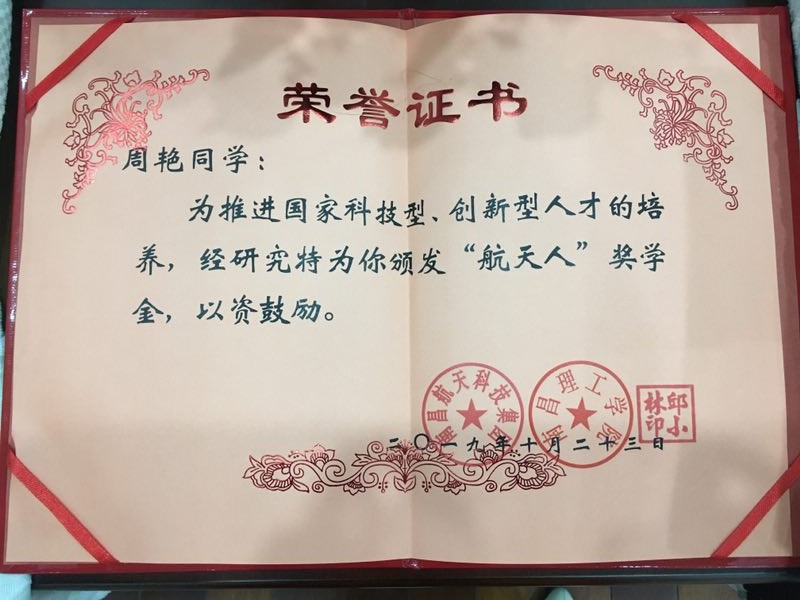 荣誉证书
周艳同学：
为推进国家科技型、创新型人才的培
养，经研究特为你颁发“航天人”奖学
金，以资鼓励。
南昌航天科技集
南昌理工学院
邱小林印
二〇一九年十月二十三日